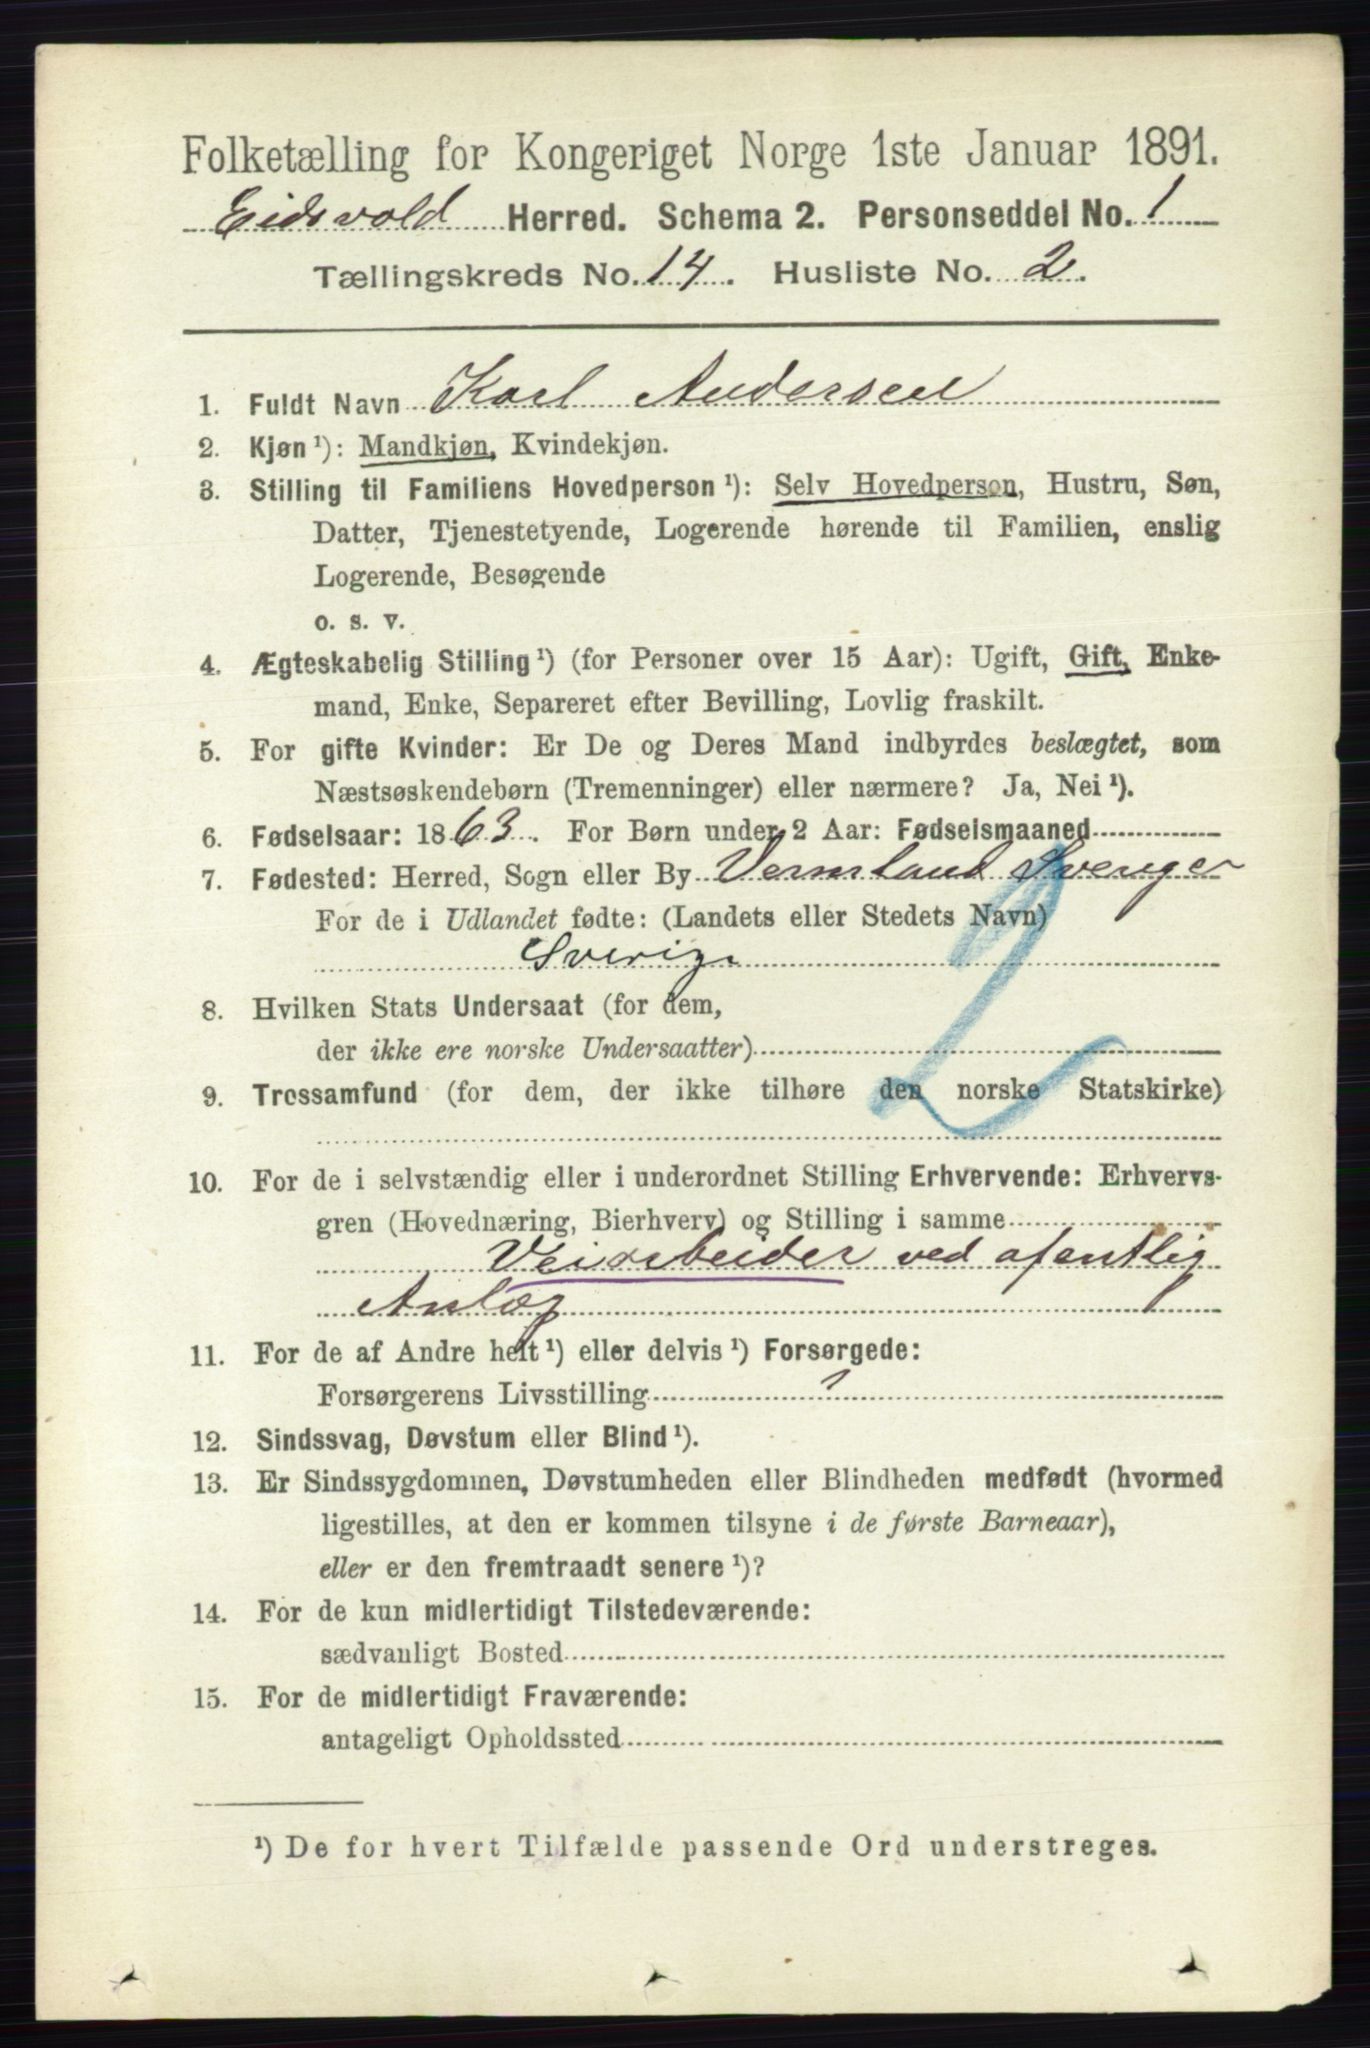 Folketælling for Kongeriget Norge 1ste Januar 1891.
Eidsvold Herred. Schema 2. Personseddel No. 1
Tællingskreds No. 14. Husliste No. 2.
1. Fuldt Navn Karl Andersen
2. Kjøn ¹): Mandkjøn, Kvindekjøn.
3. Stilling til Familiens Hovedperson ¹): Selv Hovedperson, Hustru, Søn,
Datter, Tjenestetyende, Logerende hørende til Familien, enslig
Logerende, Besøgende
o. s. v.
4. Ægteskabelig Stilling ¹) (for Personer over 15 Aar): Ugift, Gift, Enke-
mand, Enke, Separeret efter Bevilling, Lovlig fraskilt.
5. For gifte Kvinder: Er De og Deres Mand indbyrdes beslægtet, som
Næstsøskendebørn (Tremenninger) eller nærmere? Ja, Nei ¹).
6. Fødselsaar: 1863. For Børn under 2 Aar: Fødselsmaaned
7. Fødested: Herred, Sogn eller By Vermland Sverige
For de i Udlandet fødte: (Landets eller Stedets Navn)
Sverige
2
8. Hvilken Stats Undersaat (for dem,
der ikke ere norske Undersaatter)
9. Trossamfund (for dem, der ikke tilhøre den norske Statskirke)
10. For de i selvstændig eller i underordnet Stilling Erhvervende: Erhvervs-
gren (Hovednæring, Bierhverv) og Stilling i samme
Veiarbeider ved ofentlig
Anlæg
11. For de af Andre helt ¹) eller delvis ¹) Forsørgede:
Forsørgerens Livsstilling
12. Sindssvag, Døvstum eller Blind ¹).
13. Er Sindssygdommen, Døvstumheden eller Blindheden medfødt (hvormed
ligestilles, at den er kommen tilsyne i de første Barneaar),
eller er den fremtraadt senere ¹)?
14. For de kun midlertidigt Tilstedeværende:
sædvanligt Bosted
15. For de midlertidigt Fraværende:
antageligt Opholdssted
¹) De for hvert Tilfælde passende Ord understreges.